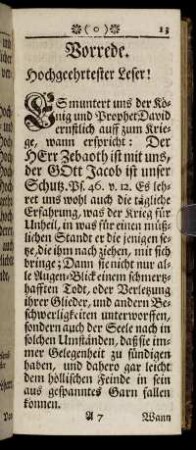 ( o ) 13
Vorrede.
Hochgeehrtester Leser!
ES muntert uns der Kö-
nig und Prophet David
ernstlich auff zum Krie-
ge, wann erspricht: Der
HErr Zebaoth ist mit uns,
der GOtt Jacob ist unser
Schutz. Ps. 46. v. 12. Es leh-
ret uns wohl auch die tägliche
Erfahrung, was der Krieg für
Unheil, in was für einen müß-
lichen Standt er die jenigen se-
tze, die ihm nach ziehen, mit sich
bringe; Dann sie nicht nur al-
le Augen-Blick einem schmertz-
hafften Todt, oder Verletzung
ihrer Glieder, und andern Be-
schwerligkeiten unterworffen,
sondern auch der Seele nach in
solchen Umständen, daß sie im-
mer Gelegenheit zu sündigen
haben, und dahero gar leicht
dem höllischen Feinde in sein
aus gespanntes Garn fallen
können.
A 7 Wann